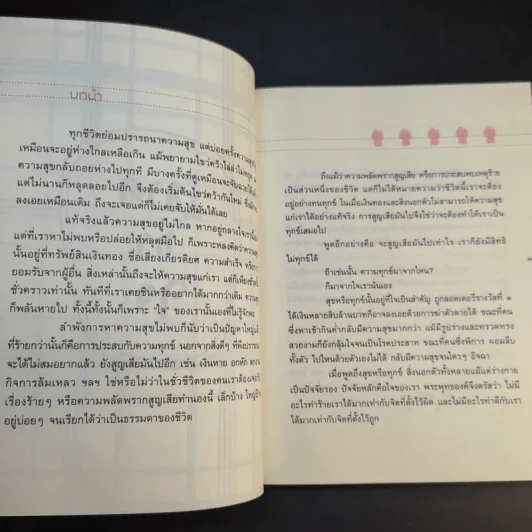 บทนำ
ทุกชีวิตย่อมปรารถนาความสุข แต่บ่อยครั้งความสุข
เหมือนจะอยู่ห่างไกลเหลือเกิน แม้พยายามไขว่คว้าไล่ล่าไม่หยุด
ความสุขกลับถอยห่างไปทุกที มีบางครั้งที่ดูเหมือนจะจับฉวยได้
แต่ไม่นานก็หลุดลอยไปอีก จึงต้องเริ่มต้นไขว่คว้ากันใหม่
ลงเอยเหมือนเดิม ถึงจะเจอแต่ก็ไม่เคยจับให้มั่นได้เลย
แท้จริงแล้วความสุขอยู่ไม่ไกล หากอยู่กลางใจเรานี้เอง
แต่ที่เราหาไม่พบหรือปล่อยให้หลุดมือไป ก็เพราะหลงคิดว่าความสุข
นั้นอยู่ที่ทรัพย์สินเงินทอง ชื่อเสียงเกียรติยศ ความสำเร็จ หรือการ
ยอมรับจากผู้อื่น สิ่งเหล่านั้นถึงจะให้ความสุขแก่เรา แต่ก็เพียง
ชั่วคราวเท่านั้น ทันทีที่เราเคยชินหรืออยากได้มากกว่าเดิม ความสุข
ก็พลันหายไป ทั้งนี้ทั้งนั้นก็เพราะ "ใจ" ของเรานั้นเองที่ไม่รู้จักพอ
ลำพังการหาความสุขไม่พบก็นับว่าเป็นปัญหาใหญ่แล้ว
ที่ร้ายกว่านั้นก็คือการประสบกับความทุกข์ นอกจากสิ่งดีๆ ที่พึงปรารถนา
จะได้ไม่สมอยากแล้ว ยังสูญเสียมันไปอีก เช่น เงินหาย อกหัก ตกงาน
กิจการล้มเหลว ฯลฯ ใช่หรือไม่ว่าในชั่วชีวิตของคนเราต้องเจอกับ
เรื่องร้ายๆ หรือความพลัดพรากสูญเสียทำนองนี้ เล็กบ้าง ใหญ่บ้าง
อยู่บ่อยๆ จนเรียกได้ว่าเป็นธรรมดาของชีวิต
ถึงแม้ว่าความพลัดพรากสูญเสีย หรือการประสบพบเหตุร้าย
เป็นส่วนหนึ่งของชีวิต แต่ก็ไม่ได้หมายความว่าชีวิตนี้เราจะต้อง
อยู่อย่างทนทุกข์ ในเมื่อเงินทองและสิ่งนอกตัวไม่สามารถให้ความสุข
แก่เราได้อย่างแท้จริง การสูญเสียมันไปจึงใช่ว่าจะต้องทำให้เราเป็น
ทุกข์เสมอไป
พูดอีกอย่างคือ จะสูญเสียมันไปเท่าไร เราก็ยังมีสิทธิ
ไม่ทุกข์ได้
ถ้าเช่นนั้น ความทุกข์มาจากไหน?
ก็มาจากใจเรานั้นเอง
สุขหรือทุกข์นั้นอยู่ที่ใจเป็นสำคัญ ถูกลอตเตอรี่รางวัลที่ ๑
ได้เงินหลายสิบล้านบาทก็อาจลงเอยด้วยการฆ่าตัวตายได้ ขณะที่คน
ซึ่งหาเช้ากินค่ำกลับมีความสุขมากกว่า แม้มีรูปร่างและทรวดทรง
สวยงามก็ยังกลุ้มใจจนเป็นโรคประสาท ขณะที่คนซึ่งพิการ นอนแล็บ
ทั้งตัว ไปไหนด้วยตัวเองไม่ได้ กลับมีความสุขจนใครๆ อิจฉา
เมื่อพูดถึงสุขหรือทุกข์ สิ่งนอกตัวทั้งหลายแม้แต่ร่างกาย
เป็นปัจจัยรอง ปัจจัยหลักคือใจของเรา พระพุทธองค์จึงตรัสว่า ไม่มี
อะไรทำร้ายเราได้มากเท่ากับจิตที่ตั้งไว้ผิด และไม่มีอะไรทำดีกับเรา
ได้มากเท่ากับจิตที่ตั้งไว้ถูก